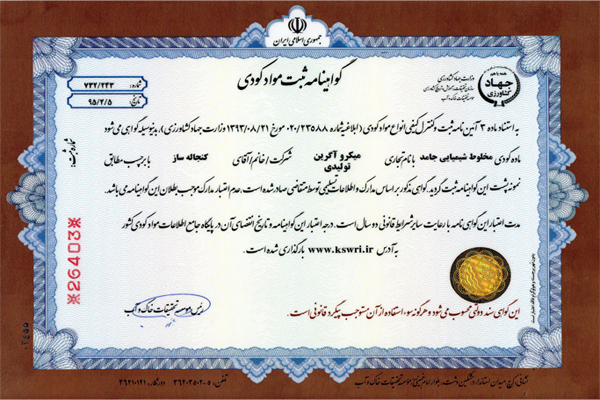 جمهوری اسلامی ایران
همه با هم
جهاد
کشاورزی
وزارت جهاد کشاورزی
سازمان تحقیقات، آموزش و ترویج کشاورزی
موسسه تحقیقات خاک و آب
گواهینامه ثبت مواد کودی
شماره: ۷۳۲/۲۴۳
تاریخ: ۹۵/۲/۵
شماره ثبت:
به استناد ماده ۳ آئین نامه ثبت و کنترل کیفی انواع مواد کودی (ابلاغیه شماره ۰۲۰/۲۳۵۸۸ مورخ ۱۳۹۳/۰۸/۲۱ وزارت جهاد کشاورزی)، بدینوسیله گواهی می شود
ماده کودی مخلوط شیمیایی جامد با نام تجاری میکرو آگرین تولیدی شرکت/خانم/آقای کنجاله ساز با برچسب مطابق
نمونه پشت این گواهینامه ثبت گردید. گواهی مذکور بر اساس مدارک و اطلاعات تسلیمی توسط متقاضی صادر شده است. عدم اعتبار مدارک موجب بطلان این گواهینامه می باشد.
مدت اعتبار این گواهی نامه با رعایت سایر شرایط قانونی دو سال است. درجه اعتبار این گواهینامه و تاریخ انقضای آن در پایگاه جامع اطلاعات مواد کودی کشور
به آدرس www.kswri.ir بارگذاری شده است.
※26403※
رئیس موسسه تحقیقات خاک و آب
این گواهی سند دولتی محسوب می شود و هرگونه سوء استفاده از آن مستوجب پیگرد قانونی است.
نشانی: کرج، میدان استاندارد، مشکین دشت، بلوار امام خمینی، موسسه تحقیقات خاک و آب تلفن: ۵-۳۶۲۰۳۵۰۲ دورنگار: ۳۶۲۱۰۱۲۱